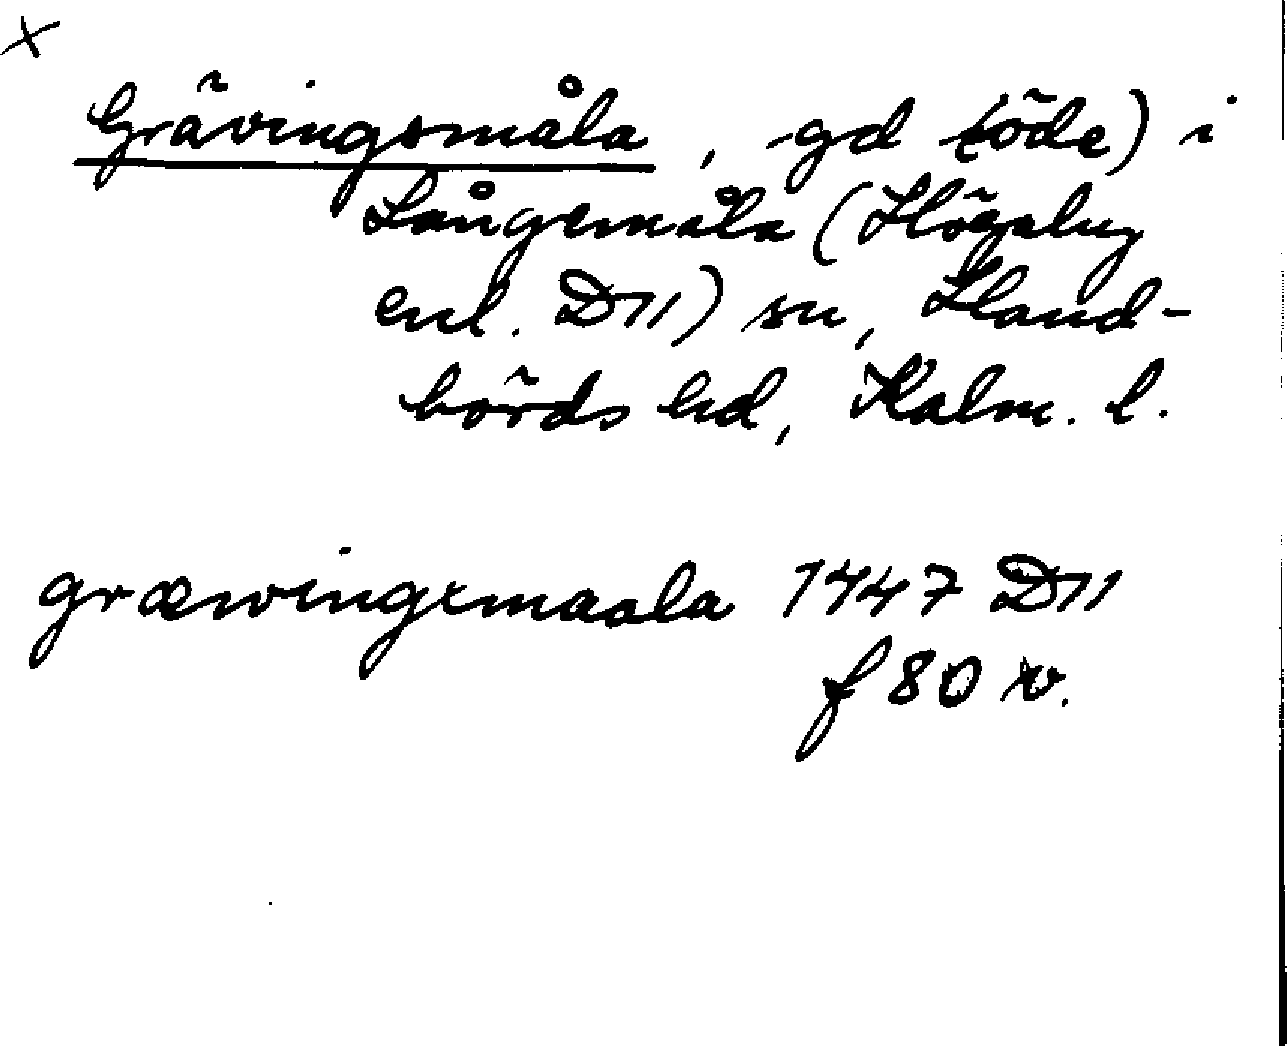 x
Grävingsmåla, gd (öde) i
Långemåla (Högsby
enl. D11) sn, Hand-
börds hd, Kalm. l.
græwingxmaala 1447 D11
f 80 v.